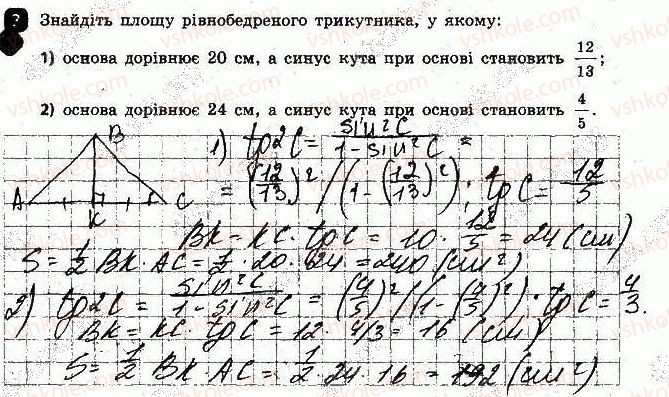 Знайдіть площу рівнобедреного трикутника, у якому:
1) основа дорівнює 20 см, а синус кута при основі становить 12/13;
2) основа дорівнює 24 см, а синус кута при основі становить 4/5.
B
A K C
1) tg²C = sin²C / 1 - sin²C =
= (12/13)² / (1 - (12/13)²); tg C = 12/5
BK = KC · tg C = 10 · 12/5 = 24 (см)
S = 1/2 BK · AC = 1/2 · 20 · 24 = 240 (см²)
2) tg²C = sin²C / 1 - sin²C = (4/5)² / (1 - (4/5)²); tg C = 4/3.
BK = KC · tg C = 12 · 4/3 = 16 (см)
S = 1/2 BK · AC = 1/2 · 24 · 16 = 192 (см²)